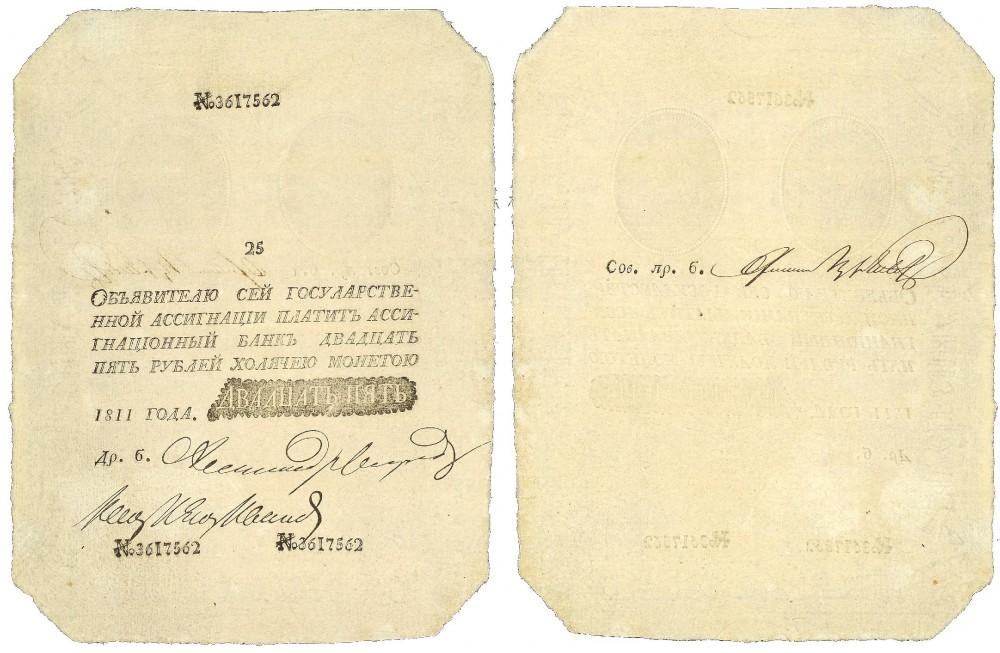 №3617562
25
ОБЪЯВИТЕЛЮ СЕЙ ГОСУЛАРСТВЕ-
ННОЙ АССИГНАЦIИ ПЛАТИТЪ АССИ-
ГНАЦIОННЫЙ БАНКЪ ДВАДЦАТЬ
ПЯТЬ РУБЛЕЙ ХОЛЯЧЕЮ МОНЕТОЮ
1811 ГОДА. ДВАДЦАТЬ ПЯТЬ
Др. б.
№3617562 №3617562
Сов. лр. б.